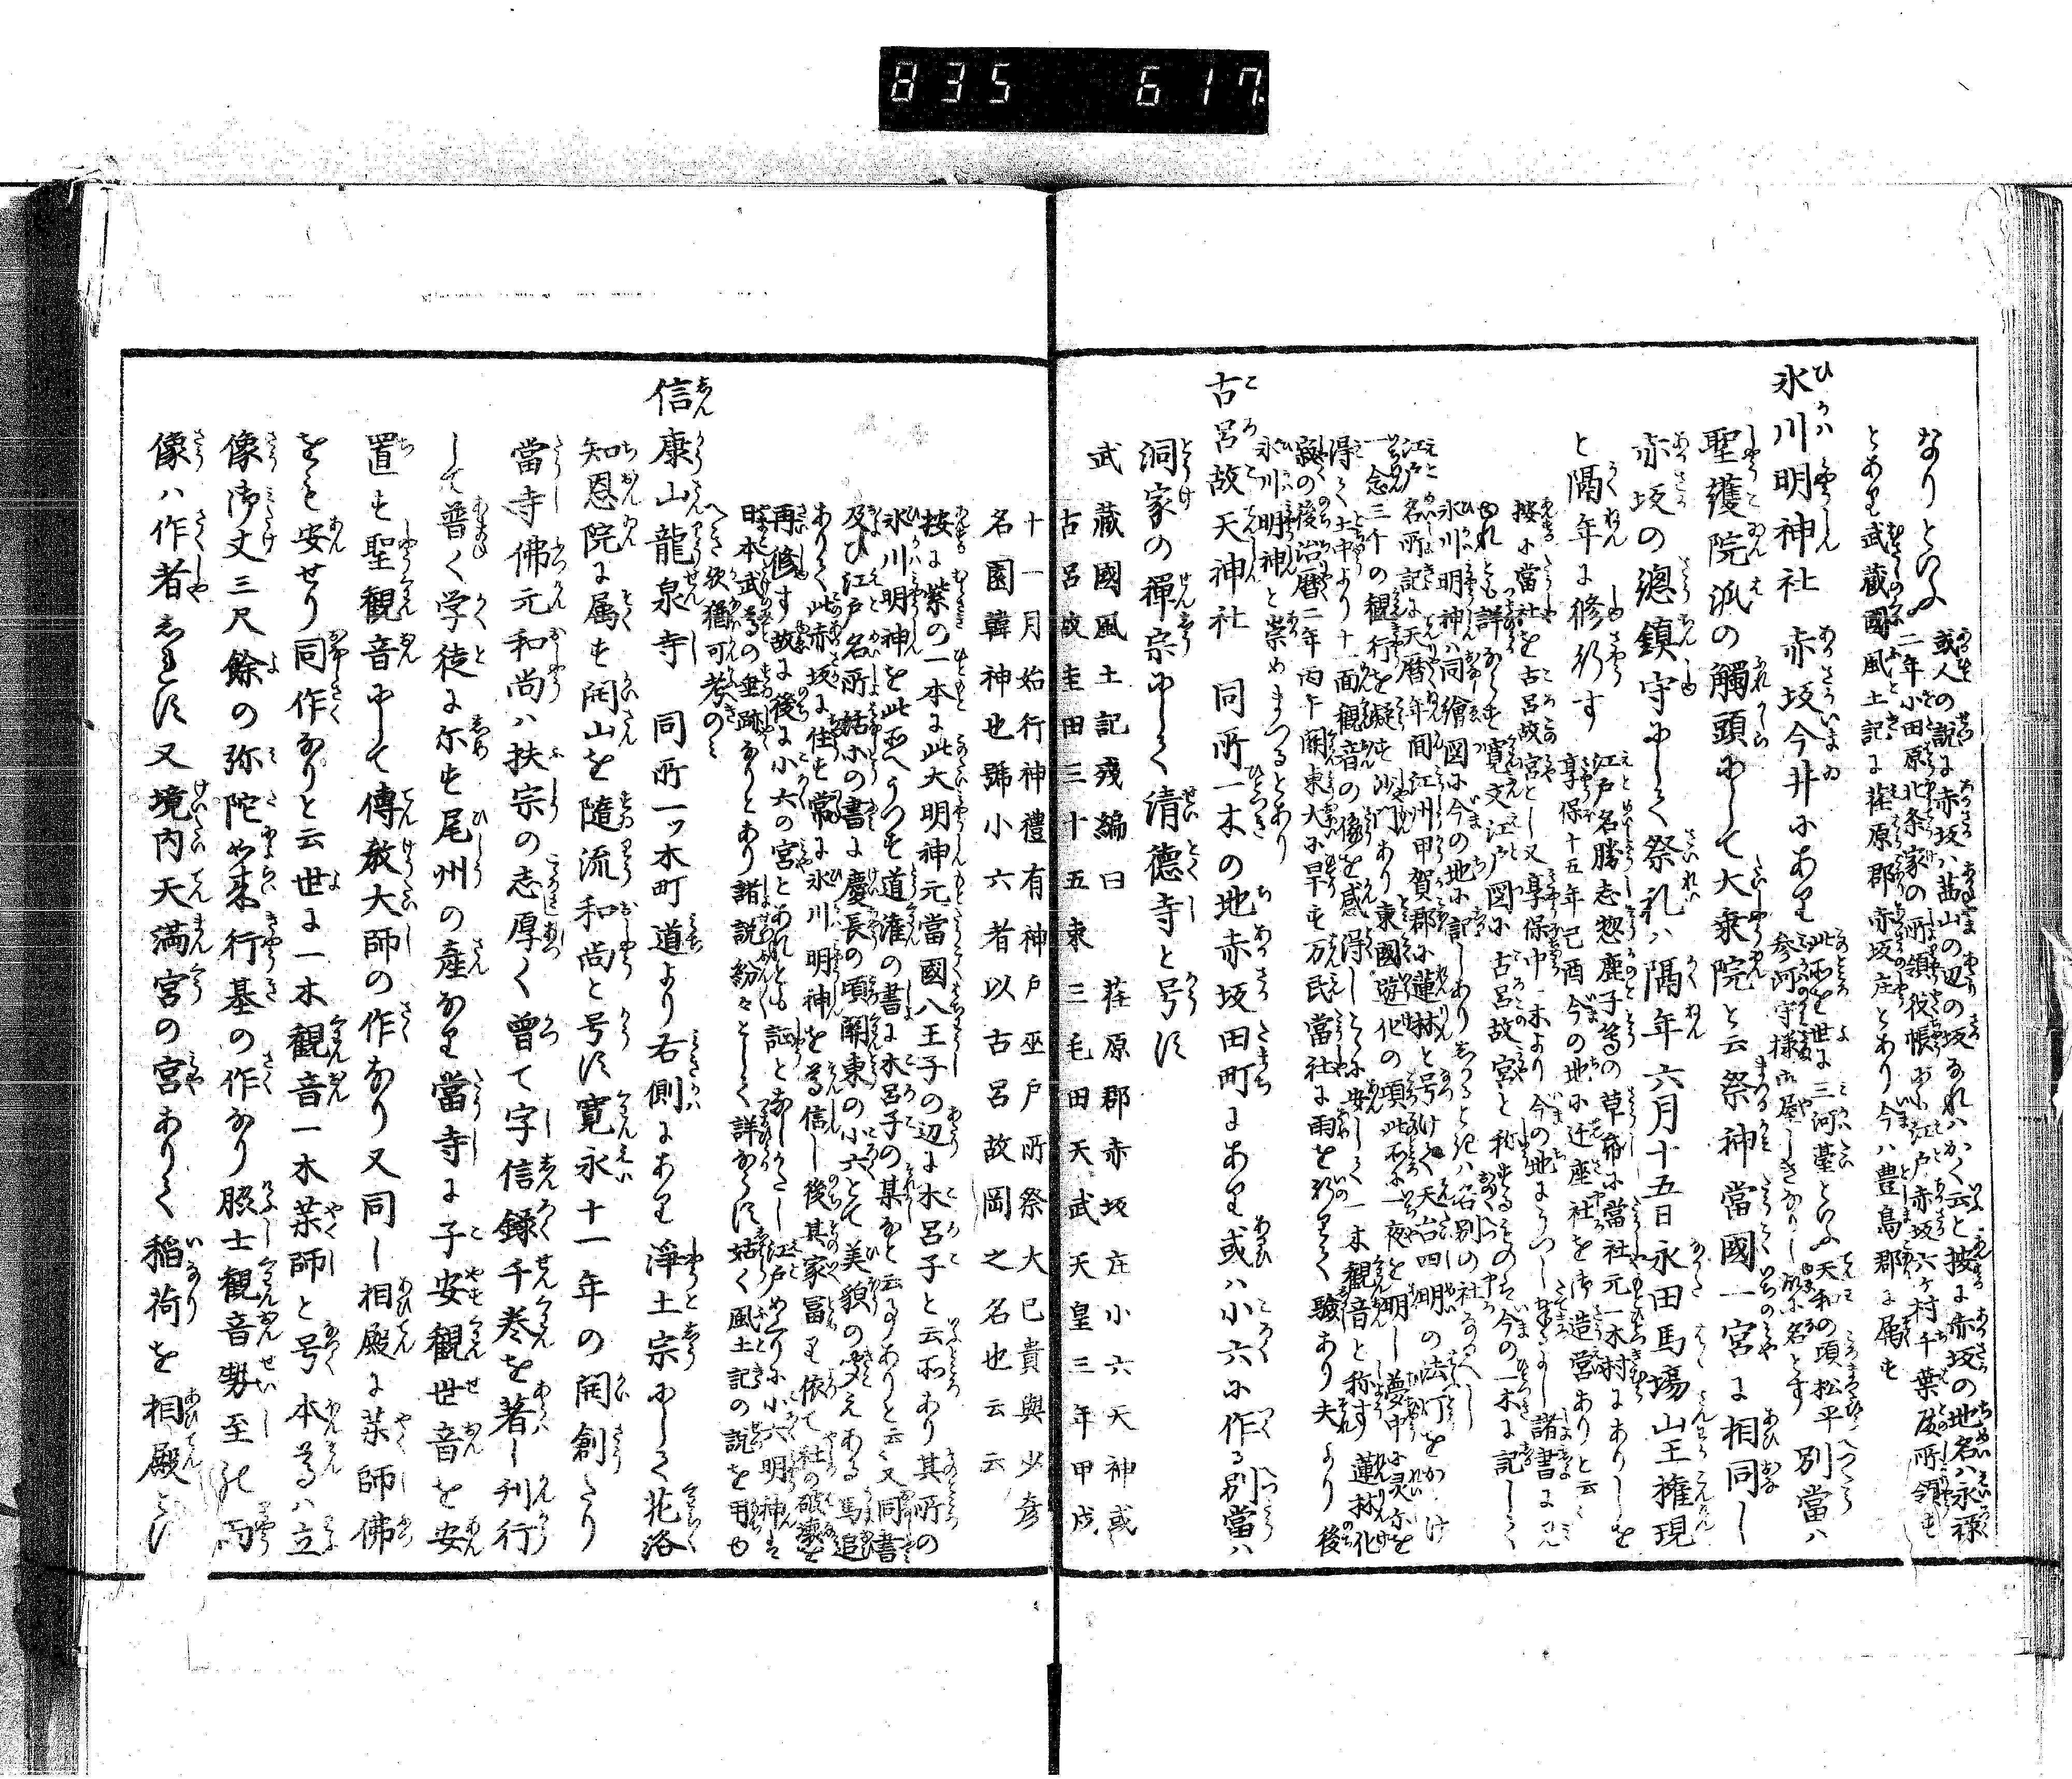 835 617.
なりといふ 或人の説に赤坂ハ茜山の辺の坂なれハかく云と按に赤坂の地名ハ永禄
二年小田原北条家の所領役帳に江戸赤坂六ケ村千葉殿所領す
とあり武蔵國風土記に荏原郡赤坂庄とあり今ハ豊島郡に属す
氷川明神社 赤坂今井にあり 此所を世に三河臺といふ天和の頃松平
参河守様御屋しきなりし故に名とす 別當ハ
聖護院派の觸頭にして大乗院と云祭神當國一宮に相同し
赤坂の總鎮守にして祭礼ハ隔年六月十五日永田馬場山王権現
と隔年に修行す 江戸名勝志惣鹿子等の草帋に當社元一木村にありしを
享保十五年己酉今の地に迁座社を御造営ありと云々
按に當社を古呂故宮とし又享保中一木より今の地にうつし
れとも詳ならす寛文江戸図に古呂故宮と
氷川明神ハ同繪図に今の地に記しあり
江戸名所記に天暦年間江州甲賀郡に蓮林と号けて天台四明の法灯をかゝけ
一念三千の観行を凝す沙門あり東國遊化の頃此所に一夜を明し夢中に灵示を
得て土中より十一面観音の像を感得し 一木観音と称す蓮林化
寂の後治暦二年丙午關東大に旱す万民當社に雨を祈りて驗あり夫より後
氷川明神と崇めまつるとあり
古呂故天神社 同所一木の地赤坂田町にあり或ハ小六に作る別當ハ
洞家の禅宗にして清徳寺と号す
武藏國風土記殘編曰 荏原郡赤坂庄小六天神或
古呂故圭田三十五束三毛田天武天皇三年甲戌
十一月始行神禮有神戸巫戸所祭大已貴與少彦
名園韓神也號小六者以古呂故岡之名也云云
按に紫の一本に此大明神元當國八王子の辺に木呂子と云所あり其所の
氷川明神を此所へうつす道潅の書に木呂子の某なと云ありと云々又同書
及ひ江戸名所話の書に慶長の頃關東の小六とて美貌の聞えある馬追
ありて此赤坂に住す常に氷川明神を尊信し後其家冨り依て社の破壊を
再修す故に後に小六の宮とあれとも證となしかたし江戸めくりに小六明神ハ
日本武尊の垂跡なりとあり諸説紛々として詳ならす姑く風土記の説を用ゆ
へき欤猶可考のミ
信康山龍泉寺 同所一ッ木町道より右側にあり浄土宗にして花洛
知恩院に属す開山を隨流和尚と号す寛永十一年の開創たり
當寺佛元和尚ハ扶宗の志厚く曽て字信録千巻を著し刋行
して普く学徒に尓す尾州の産なり當寺に子安観世音を安
置す聖観音にして傳教大師の作なり又同し相殿に薬師佛
をも安せり同作なりと云世に一木観音一木薬師と号本尊ハ立
像御丈三尺餘の弥陀如来行基の作なり脇士観音勢至の両
像ハ作者しれす又境内天満宮の宮ありて稲荷を相殿とす